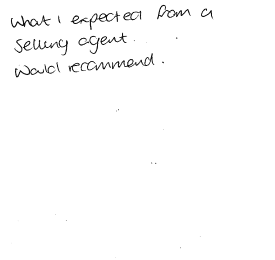 What I expected from a
selling agent.
Would recommend.